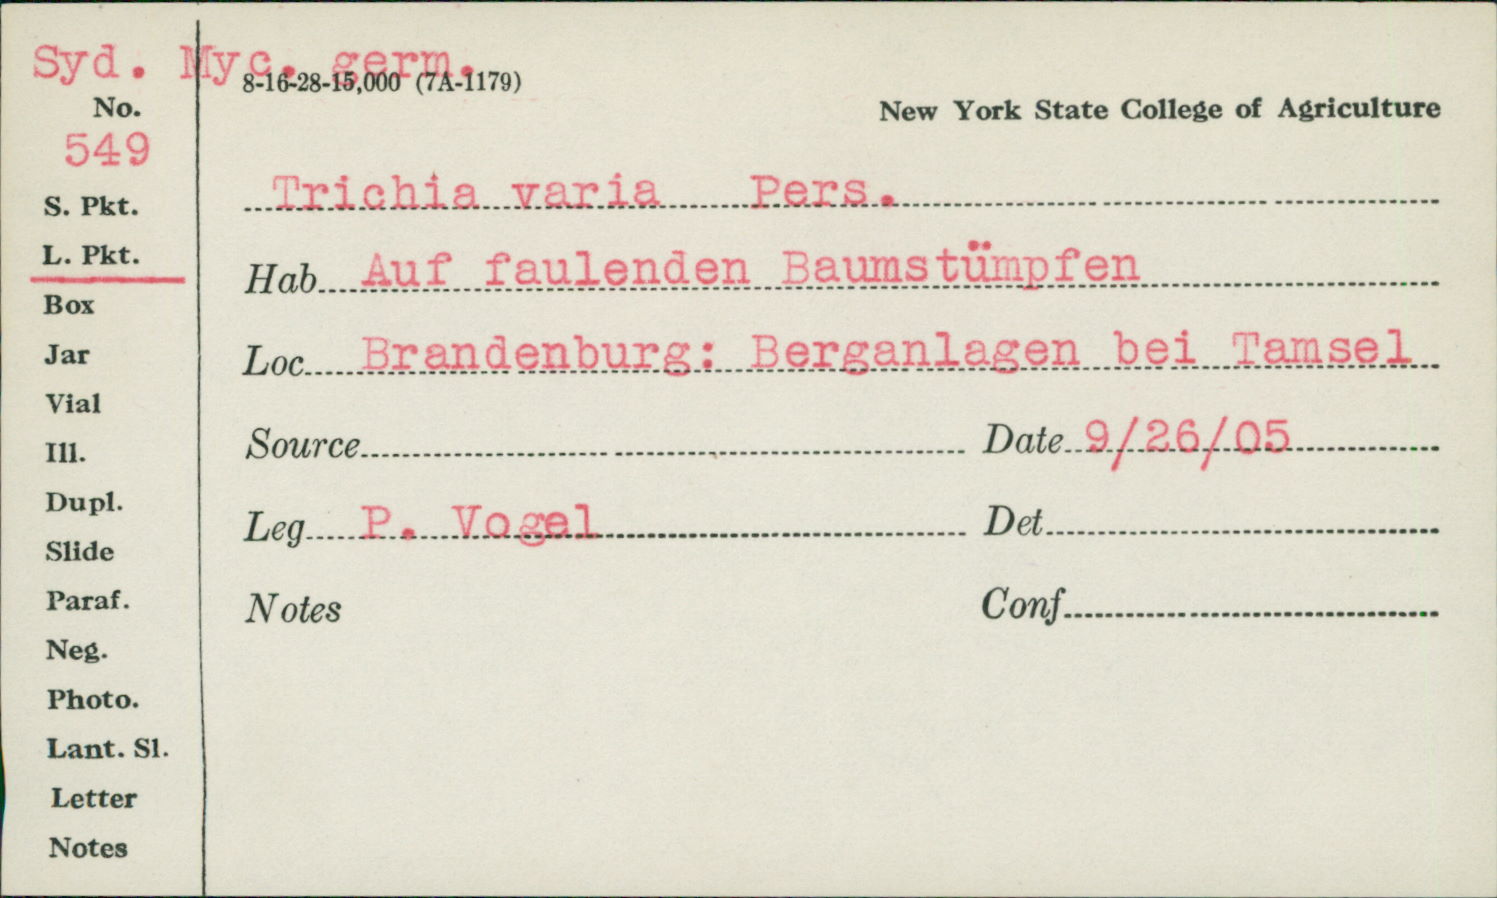 Syd. Myc. germ.
8-16-28-15,000 (7A-1179)
No.
New York State College of Agriculture
549
Trichia varia Pers.
S. Pkt.
L. Pkt.
Hab. Auf faulenden Baumstümpfen
Box
Jar
Loc. Brandenburg: Berganlagen bei Tamsel
Vial
Ill.
Source Date 9/26/05
Dupl.
Leg. P. Vogel Det
Slide
Paraf.
Notes Conf
Neg.
Photo.
Lant. Sl.
Letter
Notes